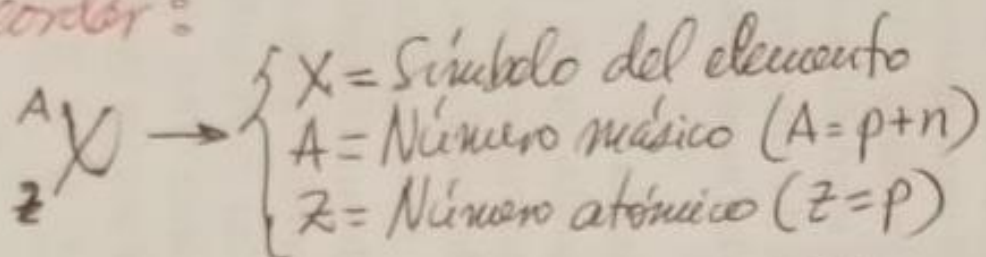 X = Símbolo del elemento
A X → A = Número másico (A = p+n)
Z Z = Número atómico (Z = P)